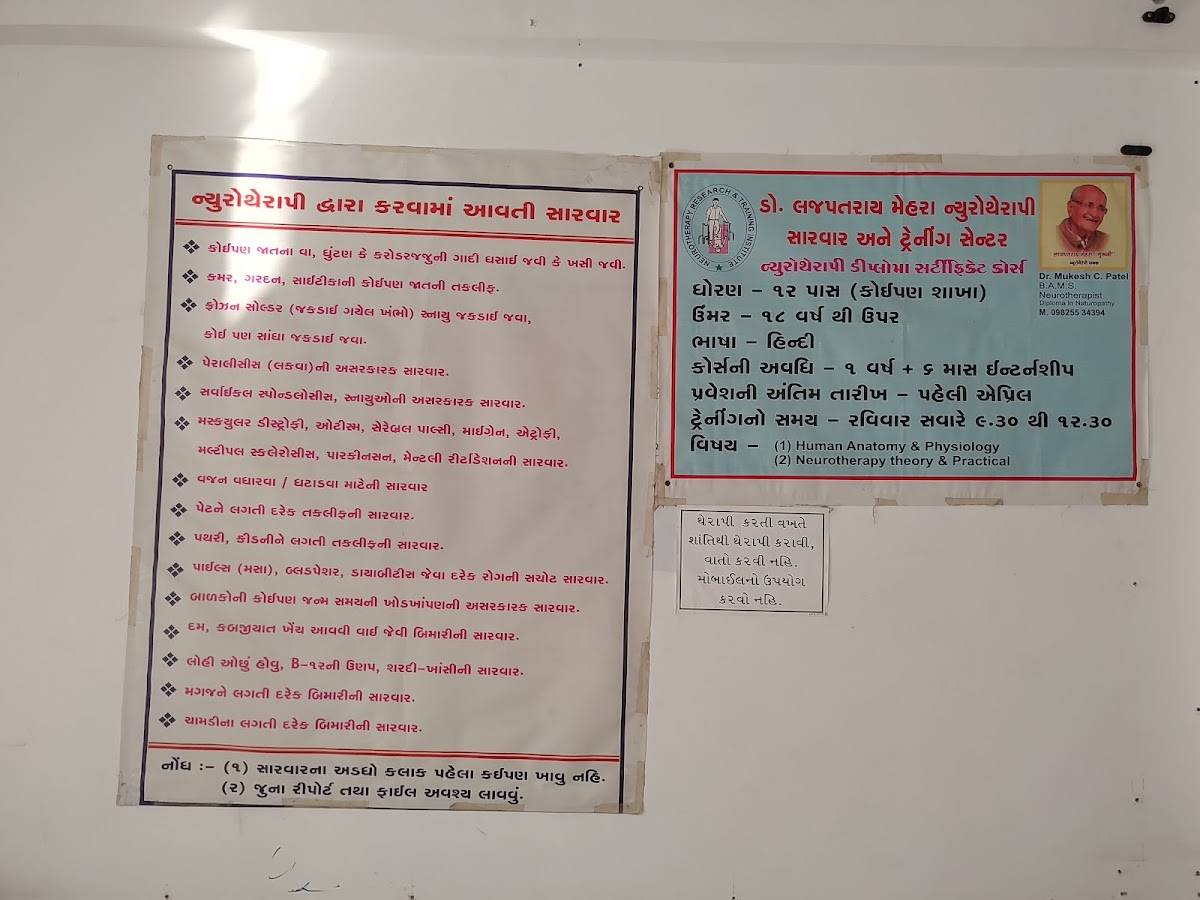 ન્યુરોથેરાપી દ્વારા કરવામાં આવતી સારવાર
❖ કોઈપણ જાતના વા, ઘુંટણ કે કરોડરજજુની ગાદી ઘસાઈ જવી કે ખસી જવી.
❖ કમર, ગરદન, સાઈટીકાની કોઈપણ જાતની તકલીફ.
❖ ફ્રોઝન સોલ્ડર (જકડાઈ ગયેલ ખંભો) સ્નાયુ જકડાઈ જવા,
કોઈ પણ સાંધા જકડાઈ જવા.
❖ પેરાલીસીસ (લકવા)ની અસરકારક સારવાર.
❖ સર્વાઈકલ સ્પોન્ડલોસીસ, સ્નાયુઓની અસરકારક સારવાર.
❖ મસ્ક્યુલર ડીસ્ટ્રોફી, ઓટીસ્મ, સેરેબ્રલ પાલ્સી, માઈગ્રેન, એટ્રોફી,
મલ્ટીપલ સ્કલેરોસીસ, પારકીનસન, મેન્ટલી રીટર્ડિશનની સારવાર.
❖ વજન વધારવા / ઘટાડવા માટેની સારવાર
❖ પેટને લગતી દરેક તકલીફની સારવાર.
❖ પથરી, કીડનીને લગતી તકલીફની સારવાર.
❖ પાઈલ્સ (મસા), બ્લડપેશર, ડાયાબીટીસ જેવા દરેક રોગની સચોટ સારવાર.
❖ બાળકોની કોઈપણ જન્મ સમયની ખોડખાંપણની અસરકારક સારવાર.
❖ દમ, કબજીયાત ખેંચ આવવી વાઈ જેવી બિમારીની સારવાર.
❖ લોહી ઓછું હોવુ, B-૧૨ની ઉણપ, શરદી-ખાંસીની સારવાર.
❖ મગજને લગતી દરેક બિમારીની સારવાર.
❖ ચામડીના લગતી દરેક બિમારીની સારવાર.
નોંધ :- (૧) સારવારના અડધો કલાક પહેલા કઈપણ ખાવુ નહિ.
(૨) જુના રીપોર્ટ તથા ફાઈલ અવશ્ય લાવવું.
NEUROTHERAPY RESEARCH & TRAINING INSTITUTE
ડો. લજપતરાય મેહરા ન્યુરોથેરાપી
સારવાર અને ટ્રેનીંગ સેન્ટર
ન્યુરોથેરાપી ડીપ્લોમા સર્ટીફિકેટ કોર્સ
ધોરણ - ૧૨ પાસ (કોઈપણ શાખા)
ઉંમર - ૧૮ વર્ષ થી ઉપર
ભાષા - હિન્દી
કોર્સની અવધિ - ૧ વર્ષ + ૬ માસ ઈન્ટર્નશીપ
પ્રવેશની અંતિમ તારીખ - પહેલી એપ્રિલ
ટ્રેનીંગનો સમય - રવિવાર સવારે ૯.૩૦ થી ૧૨.૩૦
વિષય - (1) Human Anatomy & Physiology
(2) Neurotherapy theory & Practical
Dr. Mukesh C. Patel
B.A.M.S.
Neurotherapist
Diploma in Naturopathy
M. 09825 34394
થેરાપી કરતી વખતે
શાંતિથી થેરાપી કરાવી,
વાતો કરવી નહિ.
મોબાઈલનો ઉપયોગ
કરવો નહિ.